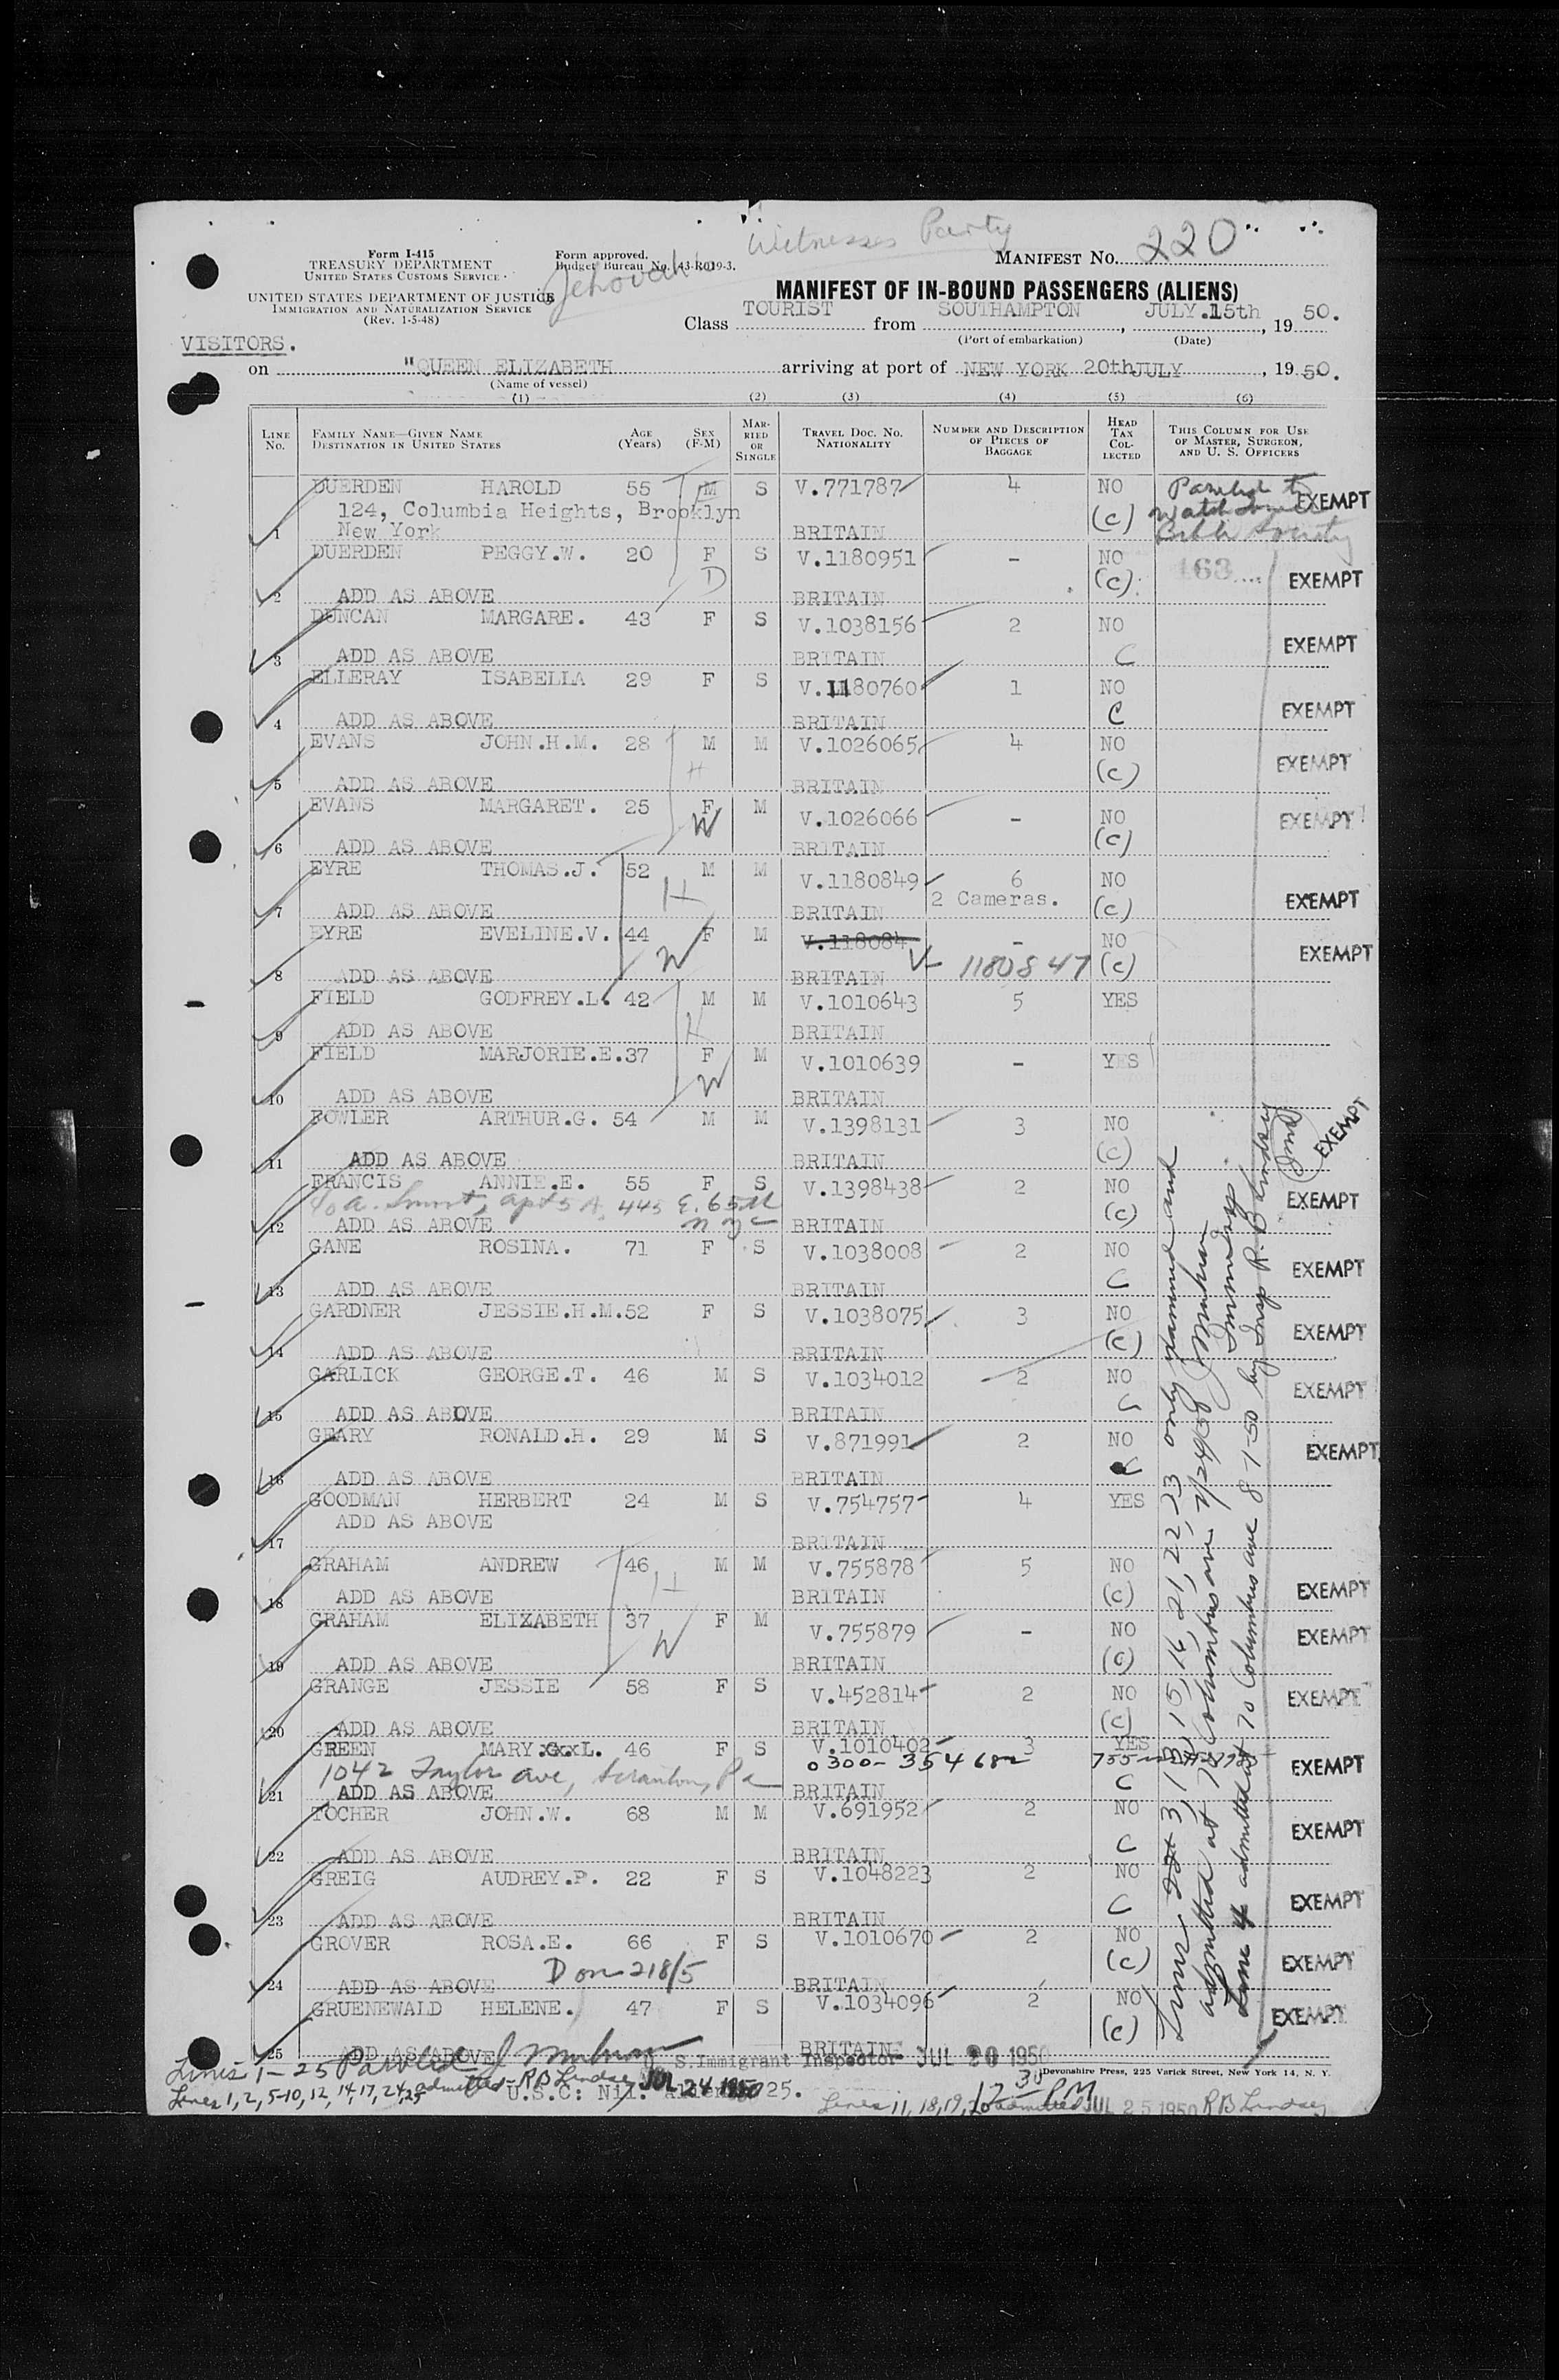 Jehovah's Witnesses Party
Form I-415
TREASURY DEPARTMENT
UNITED STATES CUSTOMS SERVICE
UNITED STATES DEPARTMENT OF JUSTICE
IMMIGRATION AND NATURALIZATION SERVICE
(Rev. 1-5-48)
Form approved.
Budget Bureau No. 43-R019-3.
MANIFEST NO. 220
MANIFEST OF IN-BOUND PASSENGERS (ALIENS)
Class TOURIST from SOUTHAMPTON, JULY.15th, 1950.
(Port of embarkation) (Date)
VISITORS.
on "QUEEN ELIZABETH arriving at port of NEW YORK 20thJULY, 1950.
(Name of vessel)
(1) (2) (3) (4) (5) (6)
LINE NO. FAMILY NAME—GIVEN NAME DESTINATION IN UNITED STATES AGE (Years) SEX (F-M) MARRIED OR SINGLE TRAVEL DOC. NO. NATIONALITY NUMBER AND DESCRIPTION OF PIECES OF BAGGAGE HEAD TAX COLLECTED THIS COLUMN FOR USE OF MASTER, SURGEON, AND U. S. OFFICERS
DUERDEN HAROLD 55 M S V.771787 4 NO Paroled to EXEMPT
124, Columbia Heights, Brooklyn (c) Watch Tower
1 New York BRITAIN Bible Society
DUERDEN PEGGY.W. 20 F S V.1180951 - NO 163
D (c) EXEMPT
2 ADD AS ABOVE BRITAIN
DUNCAN MARGARE. 43 F S V.1038156 2 NO EXEMPT
3 ADD AS ABOVE BRITAIN C
ELLERAY ISABELLA 29 F S V.1180760 1 NO EXEMPT
4 ADD AS ABOVE BRITAIN C
EVANS JOHN.H.M. 28 M M V.1026065 4 NO EXEMPT
5 ADD AS ABOVE H BRITAIN (c)
EVANS MARGARET. 25 F M V.1026066 - NO EXEMPT
6 ADD AS ABOVE W BRITAIN (c)
EYRE THOMAS.J. 52 M M V.1180849 6 NO
2 Cameras. EXEMPT
7 ADD AS ABOVE H BRITAIN (c)
EYRE EVELINE.V. 44 F M V.118084 - NO EXEMPT
8 ADD AS ABOVE W BRITAIN V- 1180847 (c)
FIELD GODFREY.L. 42 M M V.1010643 5 YES
9 ADD AS ABOVE H BRITAIN
FIELD MARJORIE.E.37 F M V.1010639 - YES
10 ADD AS ABOVE W BRITAIN
FOWLER ARTHUR.G. 54 M M V.1398131 3 NO EXEMPT
11 ADD AS ABOVE BRITAIN (c)
FRANCIS ANNIE.E. 55 F S V.1398438 2 NO EXEMPT
apt 5 A, 445 E. 65th (c)
12 ADD AS ABOVE nyc BRITAIN
GANE ROSINA. 71 F S V.1038008 2 NO EXEMPT
13 ADD AS ABOVE BRITAIN C
GARDNER JESSIE.H.M.52 F S V.1038075 3 NO EXEMPT
14 ADD AS ABOVE BRITAIN (c)
GARLICK GEORGE.T. 46 M S V.1034012 2 NO EXEMPT
15 ADD AS ABOVE BRITAIN C
GEARY RONALD.H. 29 M S V.871991 2 NO EXEMPT
16 ADD AS ABOVE BRITAIN C
GOODMAN HERBERT 24 M S V.754757 4 YES
ADD AS ABOVE
17 BRITAIN
GRAHAM ANDREW 46 M M V.755878 5 NO EXEMPT
18 ADD AS ABOVE H BRITAIN (c)
GRAHAM ELIZABETH 37 F M V.755879 - NO EXEMPT
19 ADD AS ABOVE W BRITAIN (c)
GRANGE JESSIE 58 F S V.452814 2 NO EXEMPT
20 ADD AS ABOVE BRITAIN (c)
GREEN MARY.G.L. 46 F S V.1010402 3 YES
1042 Taylor ave, Scranton, Pa 0300-354682 EXEMPT
21 ADD AS ABOVE BRITAIN C
TOCHER JOHN.W. 68 M M V.691952 2 NO EXEMPT
22 ADD AS ABOVE BRITAIN C
GREIG AUDREY.P. 22 F S V.1048223 2 NO EXEMPT
23 ADD AS ABOVE BRITAIN C
GROVER ROSA.E. 66 F S V.1010670 2 NO EXEMPT
D on 218/5 (c)
24 ADD AS ABOVE BRITAIN
GRUENEWALD HELENE. 47 F S V.1034096 2 NO EXEMPT
25 ADD AS ABOVE BRITAIN (c)
Lines 3, 13, 15, 16, 21, 22, 23 only examined and
admitted at 70 Columbus ave 7/24/50
Line 4 admitted at 70 Columbus ave 8-1-50 by Insp R. B. Lindsey
Lines 1-25 Paroled U. S. Immigrant Inspector JUL 20 1950
Devonshire Press, 225 Varick Street, New York 14, N. Y.
Lines 1, 2, 5-10, 12, 14, 17, 24, 25 admitted - RB Lindsey JUL 24 1950
U.S.C: Nil. Aliens: 25.
12 30 PM
Lines 11, 18, 19, 20 admitted JUL 25 1950 RB Lindsey